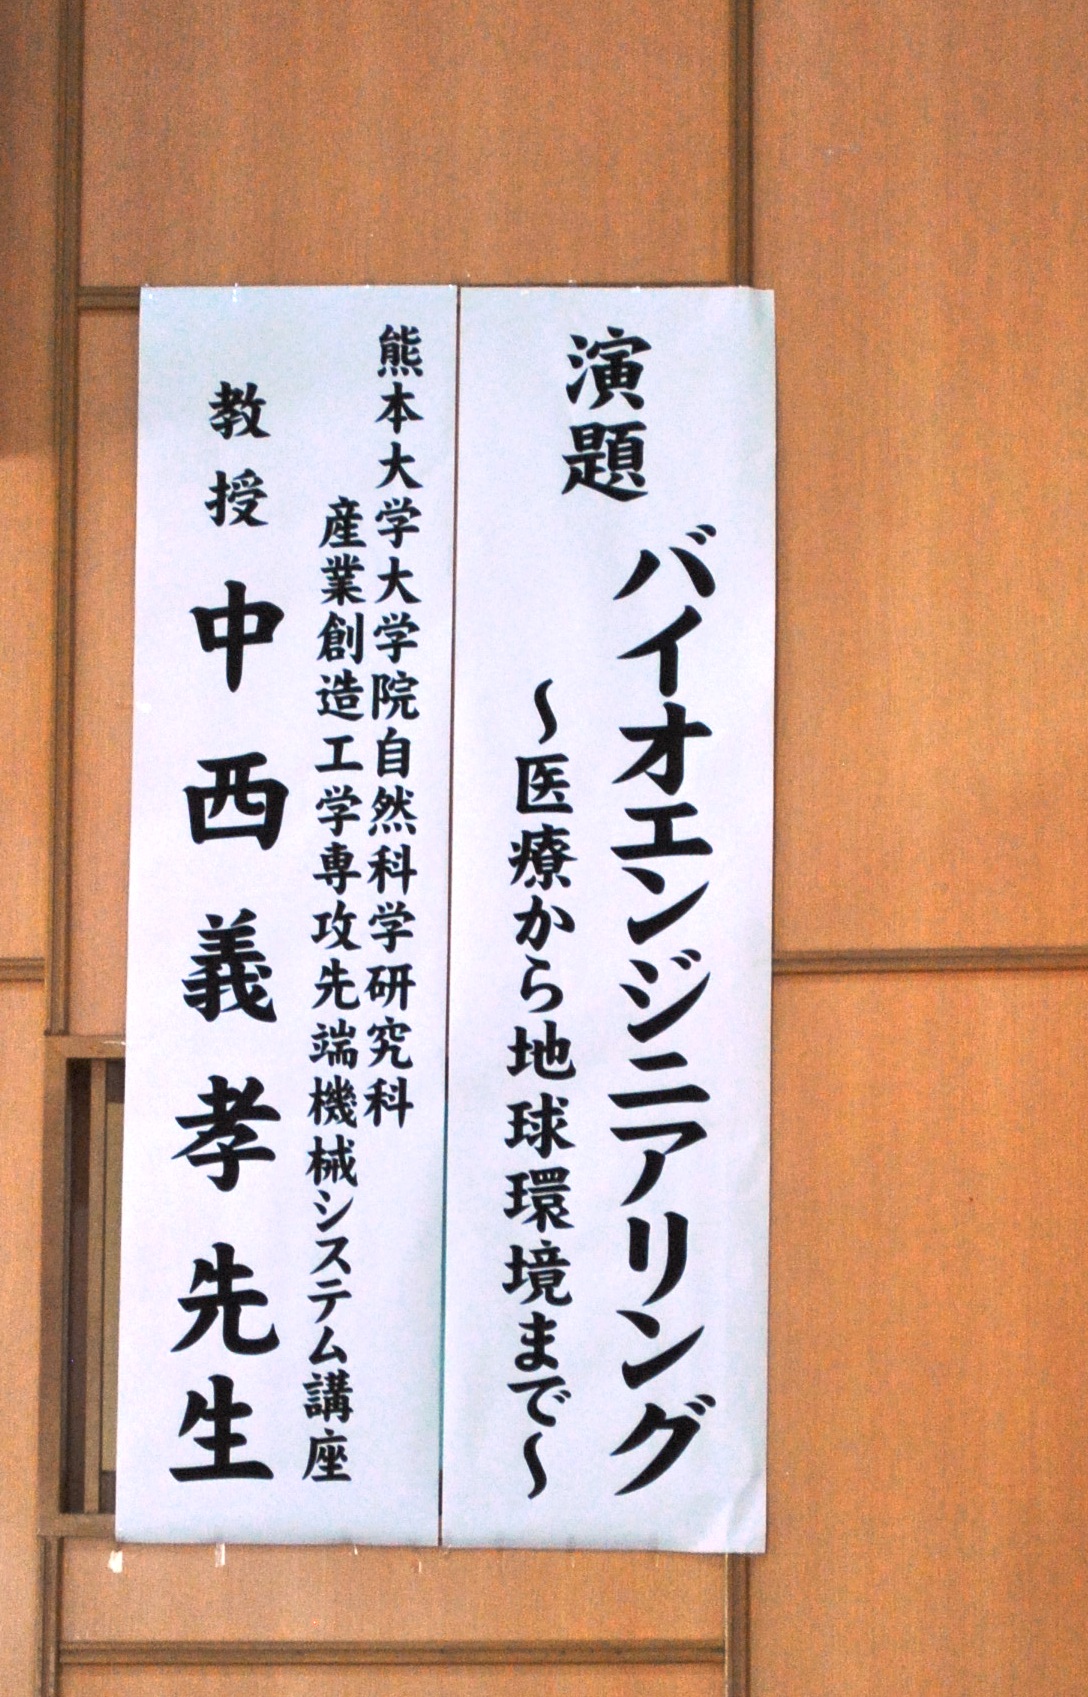 演題
バイオエンジニアリング
〜医療から地球環境まで〜
熊本大学大学院自然科学研究科
産業創造工学専攻先端機械システム講座
教授 中西義孝先生